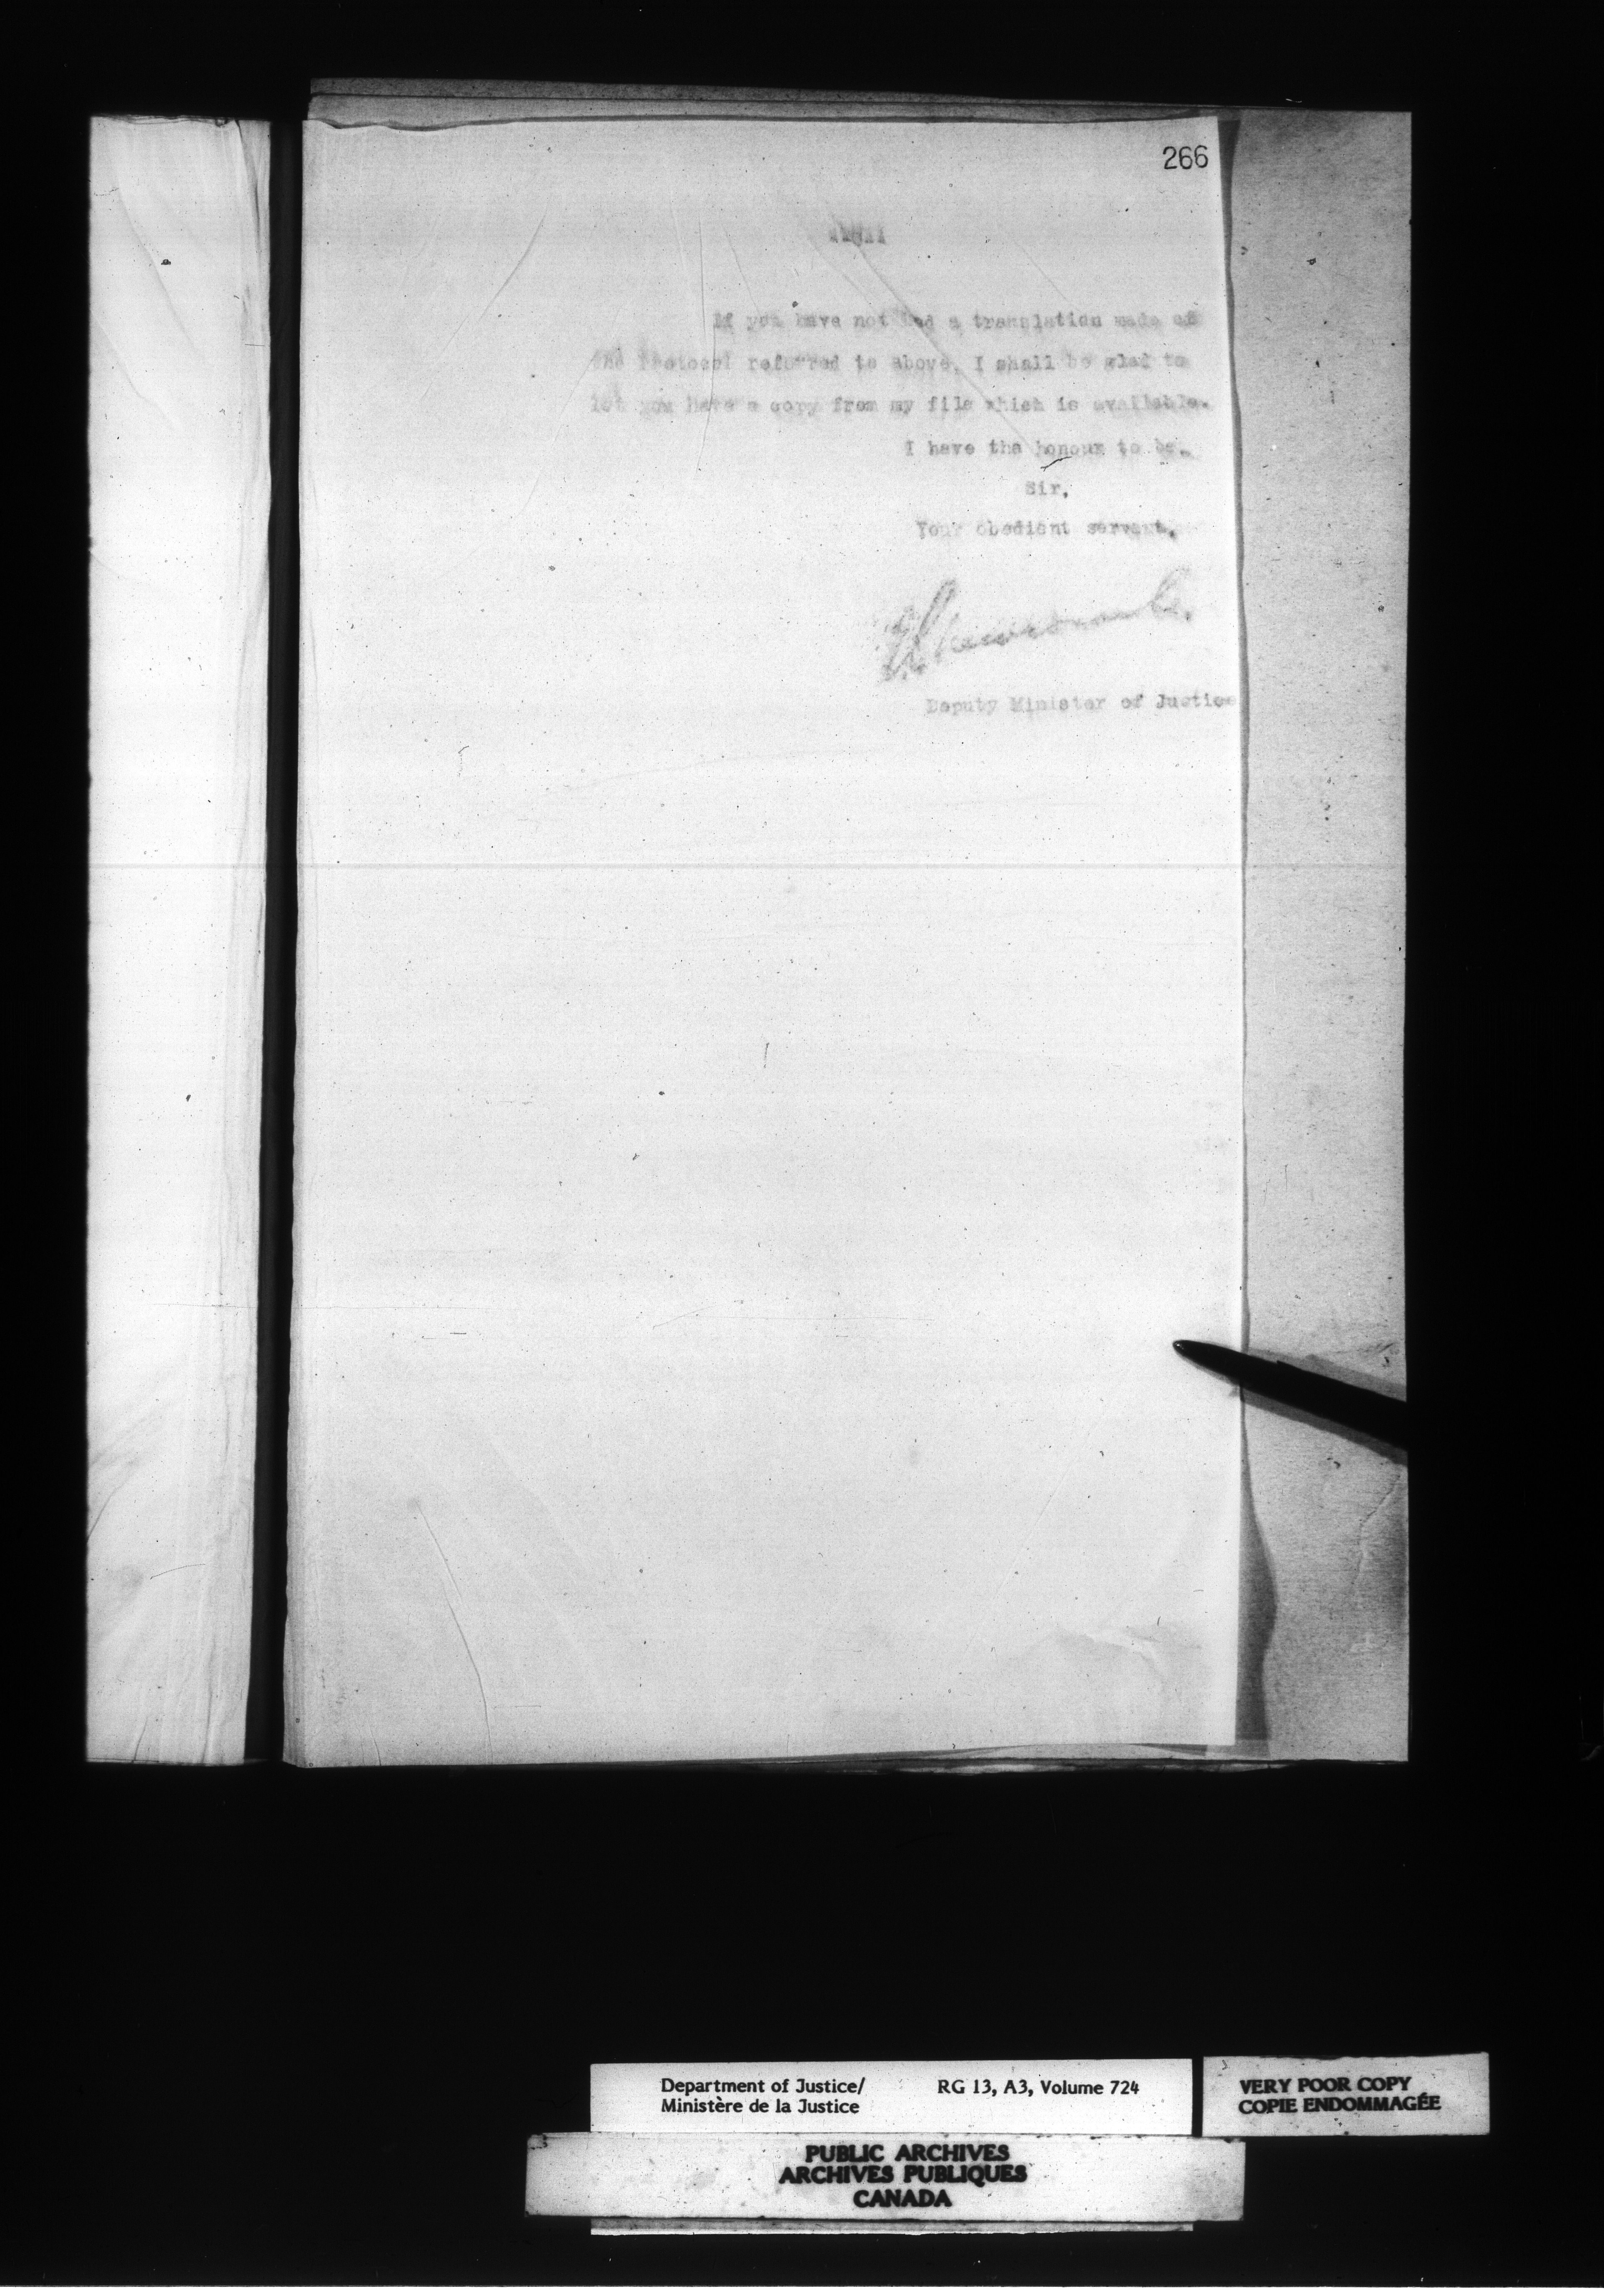 266
If you have not had a translation made of
the Protocol referred to above, I shall be glad to
let you have a copy from my file which is available.
I have the honour to be,
Sir,
Your obedient servant,
Newcombe.
Deputy Minister of Justice
Department of Justice/ RG 13, A3, Volume 724
Ministère de la Justice
VERY POOR COPY
COPIE ENDOMMAGÉE
PUBLIC ARCHIVES
ARCHIVES PUBLIQUES
CANADA